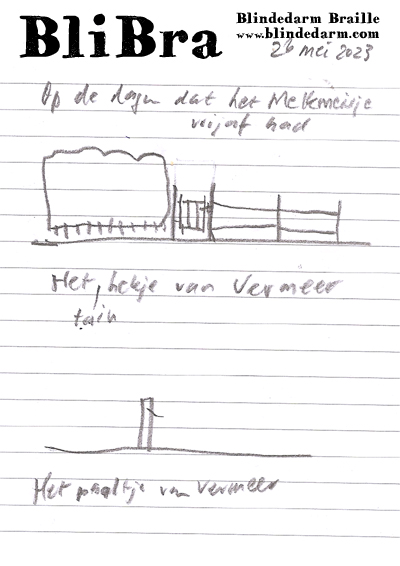 BliBra
Blindedarm Braille
www.blindedarm.com
26 mei 2023
Op de dagen dat het Melkmeisje
vrijaf had
Het hekje van Vermeer
tuin
Het paaltje van Vermeer